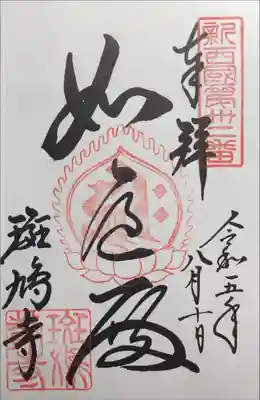 新西國第卅二番
奉拝
令和五年
八月十日
如意殿
斑鳩寺